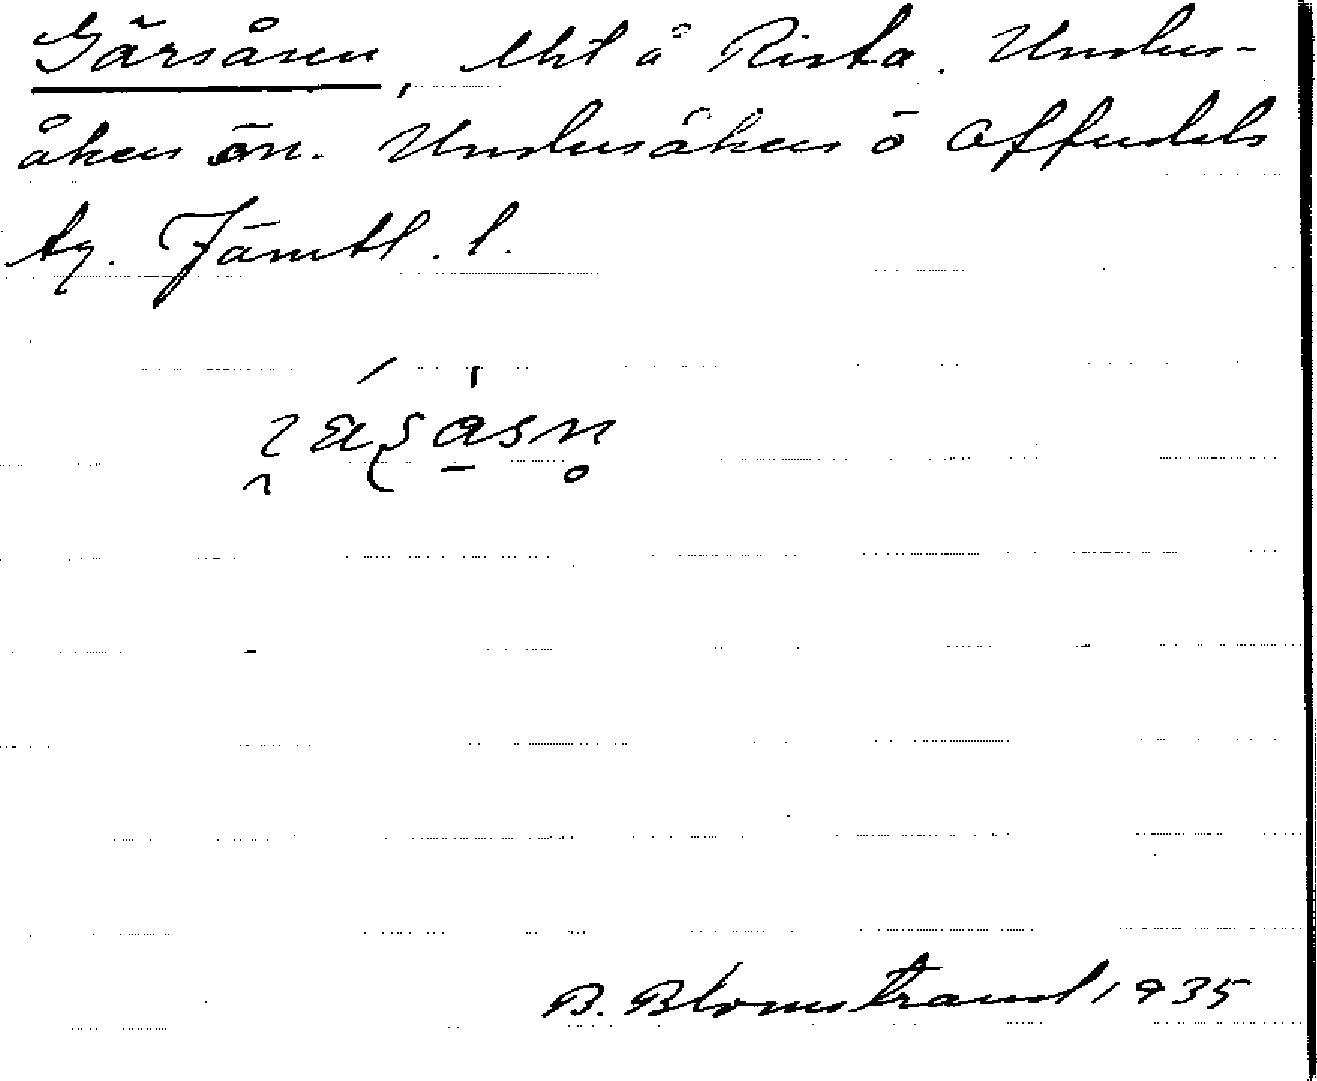 Gärsåsen, Uht å Rista. Unders-
åkers sn. Undersåkers o Offerdals
tg. Jämtl. l.
B. Blomstrand 1935